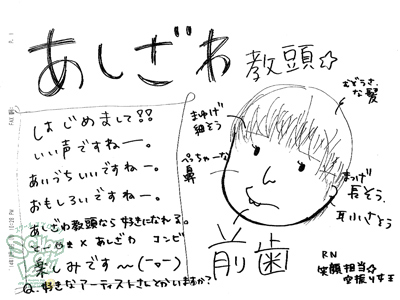 あしざわ教頭☆
はじめまして!!
いい声ですねー。
あいづちいいですねー。
おもしろいですねー。
あしざわ教頭なら好きになれる。
とーやま×あしざわ コンビ
楽しみです〜(ーοー)
Q.好きなアーティストさんとかいますか?
むぞうさな髪
まゆげ細そう
ぺっちゃーな鼻
まつげ長そう、
耳小さそう
前歯
RN
笑顔担当☆
空振り女王